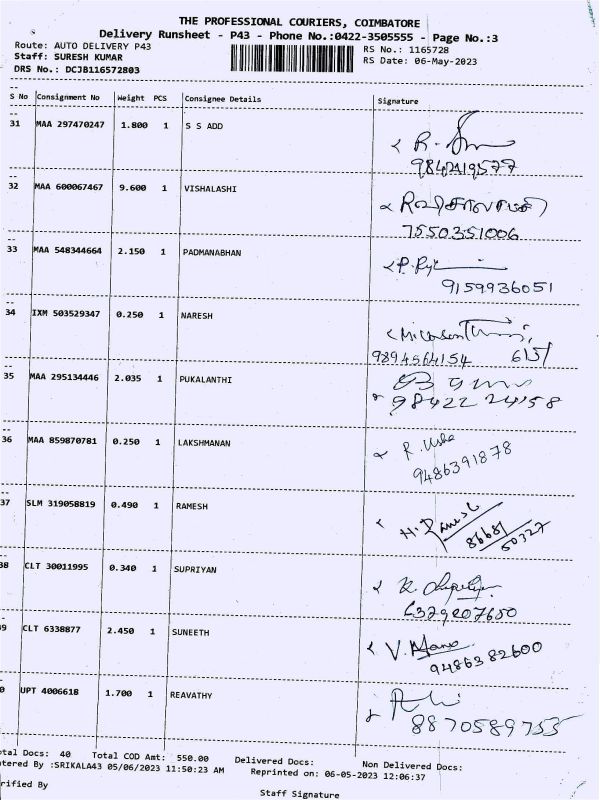 THE PROFESSIONAL COURIERS, COIMBATORE
Delivery Runsheet - P43 - Phone No.:0422-3505555 - Page No.:3
Route: AUTO DELIVERY P43 RS No.: 1165728
Staff: SURESH KUMAR RS Date: 06-May-2023
DRS No.: DCJB116572803
S No Consignment No Weight PCS Consignee Details Signature
31 MAA 297470247 1.800 1 S S ADD
R.
32 MAA 600067467 9.600 1 VISHALASHI
7550351006
33 MAA 548344664 2.150 1 PADMANABHAN
P.
9159936051
34 IXM 503529347 0.250 1 NARESH
9894564154 6/5/
35 MAA 295134446 2.035 1 PUKALANTHI
98422 24158
36 MAA 859870781 0.250 1 LAKSHMANAN
R. Usha
9486391878
37 SLM 319058819 0.490 1 RAMESH
H. Ramesh
86681
50327
38 CLT 30011995 0.340 1 SUPRIYAN
6379207650
9 CLT 6338877 2.450 1 SUNEETH
V.
9486382600
0 UPT 4006618 1.700 1 REAVATHY
8870589755
otal Docs: 40 Total COD Amt: 550.00 Delivered Docs: Non Delivered Docs:
ntered By :SRIKALA43 05/06/2023 11:50:23 AM Reprinted on: 06-05-2023 12:06:37
rified By Staff Signature